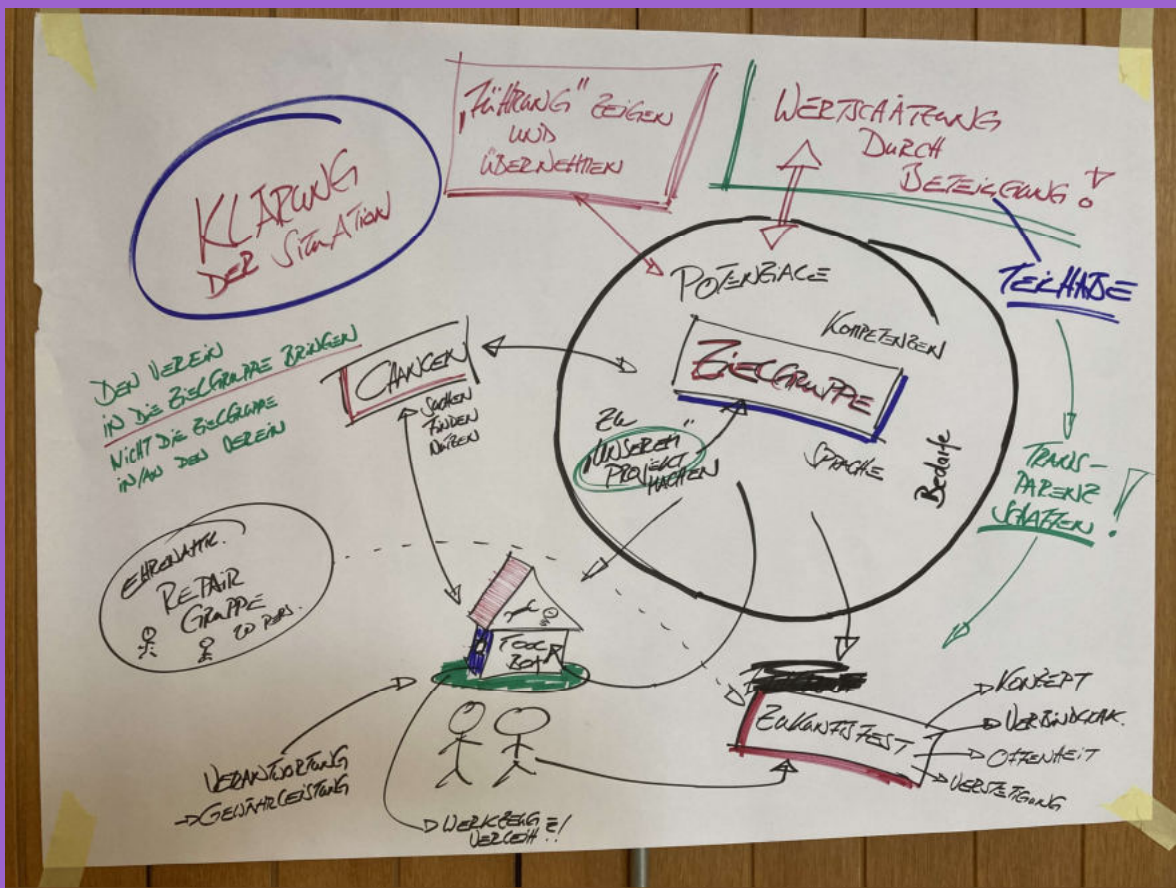 KLÄRUNG
DER SITUATION
„FÜHRUNG" ZEIGEN
UND
ÜBERNEHMEN
WERTSCHÄTZUNG
DURCH
BETEILIGUNG!
TEILHABE
TRANS-
PARENZ
SCHAFFEN!
DEN VEREIN
IN DIE ZIELGRUPPE BRINGEN
NICHT DIE ZIELGRUPPE
IN/AN DEN VEREIN
CHANCEN
SUCHEN
FINDEN
NUTZEN
POTENZIALE
KOMPETENZEN
ZIELGRUPPE
SPRACHE
Bedarfe
ZU
„UNSEREM"
PROJEKT
MACHEN
EHRENAMTL.
REPAIR
GRUPPE
20 PERS.
TOOL
BOX
VERANTWORTUNG
GEWÄHRLEISTUNG
WERKZEUG
VERLEIH!
ZUKUNFTSFEST
KONZEPT
VERBINDLICHK.
OFFENHEIT
VERSTETIGUNG